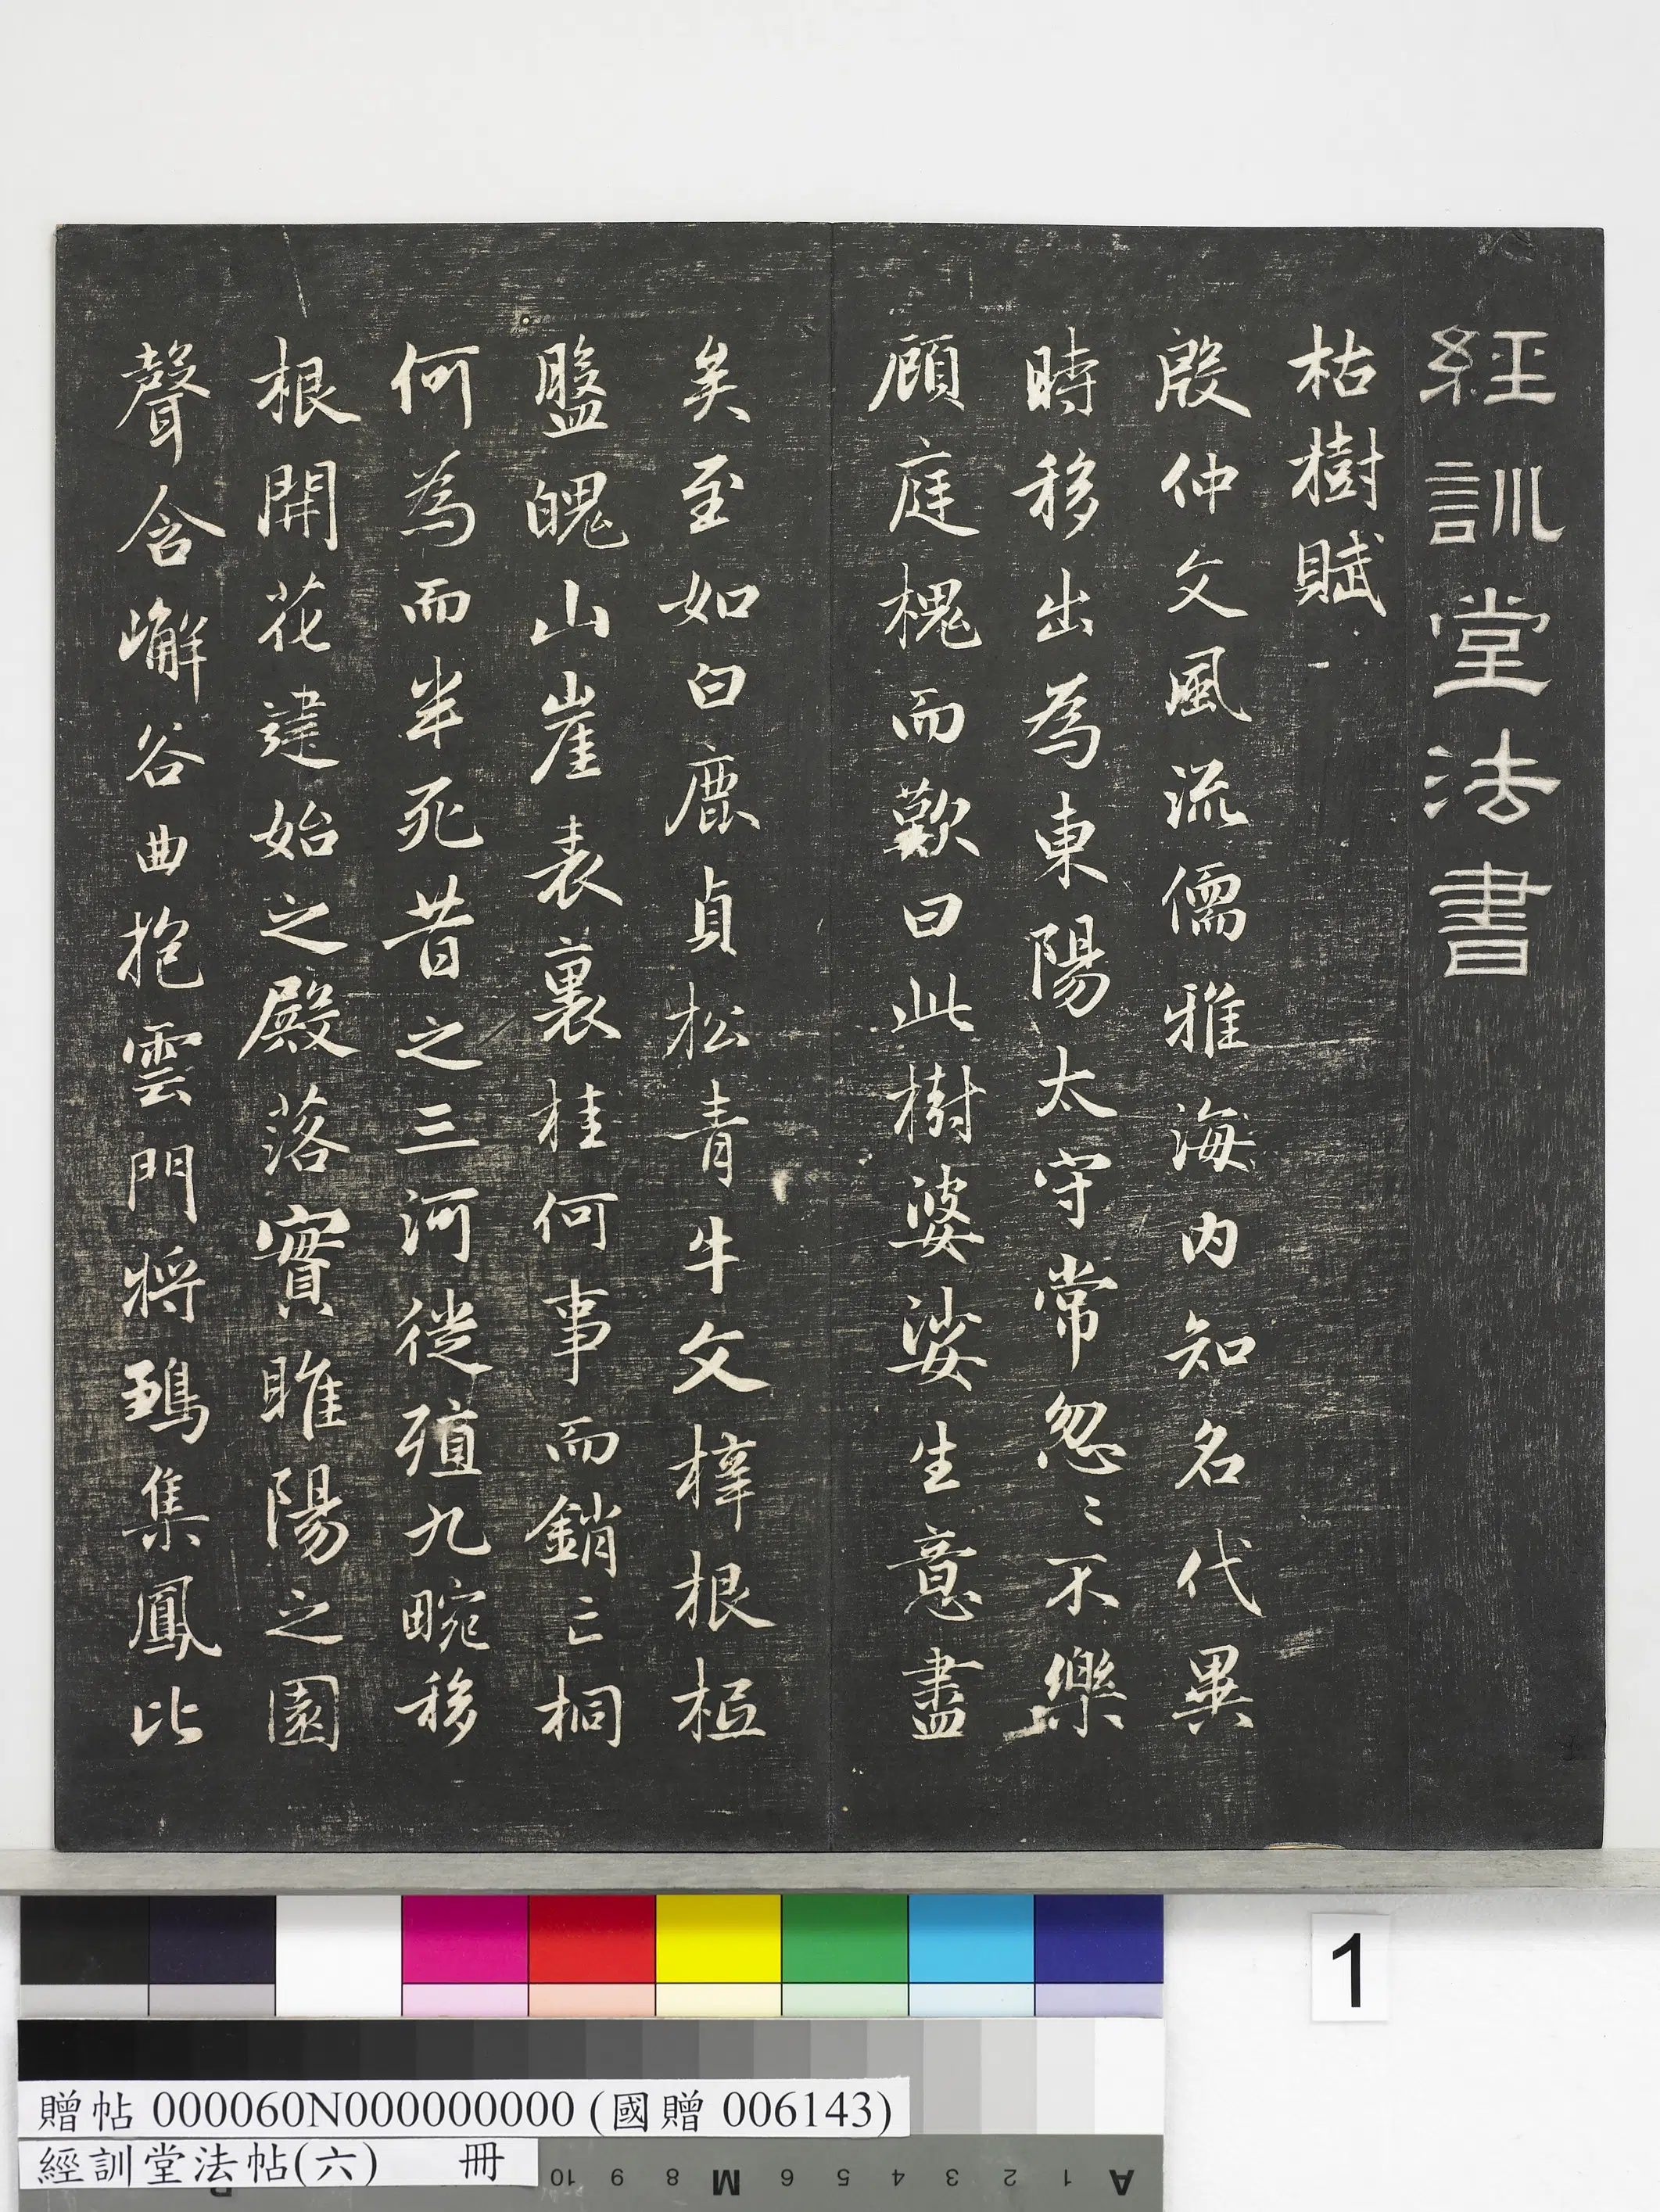 經訓堂法書
枯樹賦
殷仲文風流儒雅海内知名代異
時移出為東陽太守常忽〻不樂
顧庭槐而歎曰此樹婆娑生意盡
矣至如白鹿貞松青牛文梓根柢
盤魄山崖表裏桂何事而銷亡桐
何為而半死昔之三河徙殖九畹移
根開花建始之殿落實睢陽之園
聲含嶰谷曲抱雲門将鶵集鳳比
1
贈帖 000060N000000000 (國贈 006143)
經訓堂法帖(六) 冊
10 9 8 M 6 5 4 3 2 1 A